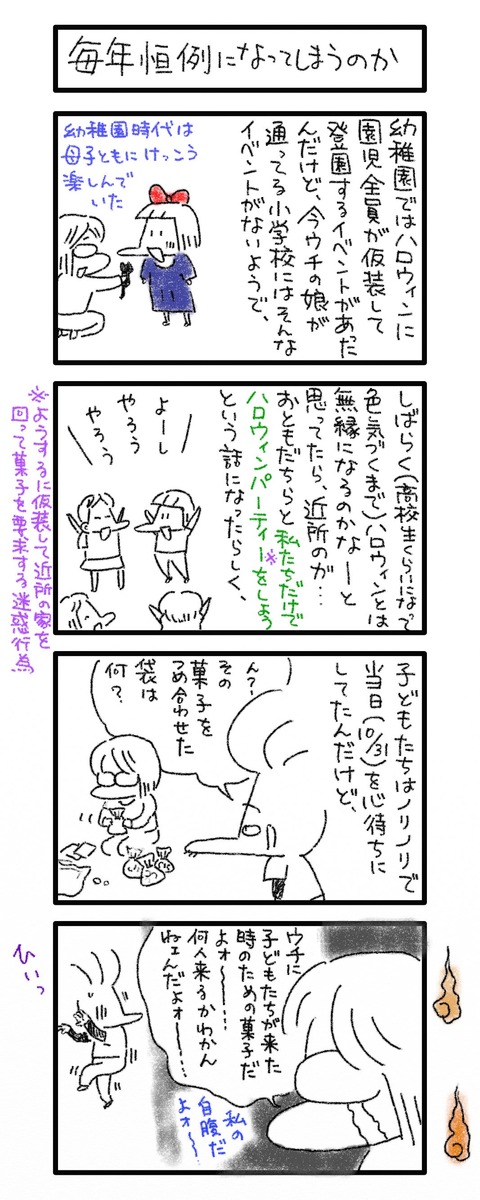 毎年恒例になってしまうのか
幼稚園ではハロウィンに
園児全員が仮装して
登園するイベントがあった
んだけど、今ウチの娘が
通ってる小学校にはそんな
イベントがないようで、
幼稚園時代は
母子ともにけっこう
楽しんで
いた
しばらく(高校生くらいになって
色気づくまで)ハロウィンとは
無縁になるのかなーと
思ってたら、近所のガ…
おともだちらと私たちだけで
ハロウィンパーティー※をしよう
という話になったらしく、
よーし
やろう
やろう
※ようするに仮装して近所の家を
回って菓子を要求する迷惑行為
子どもたちはノリノリで
当日(10/31)を心待ちに
してたんだけど、
ん?
その
菓子を
つめ合わせた
袋は
何?
ウチに
子どもたちが来た
時のための菓子だ
よォ〜〜……
何人来るかわかん
ねェんだよォ〜……
私の
自腹だ
よォ〜〜
ひぃっ